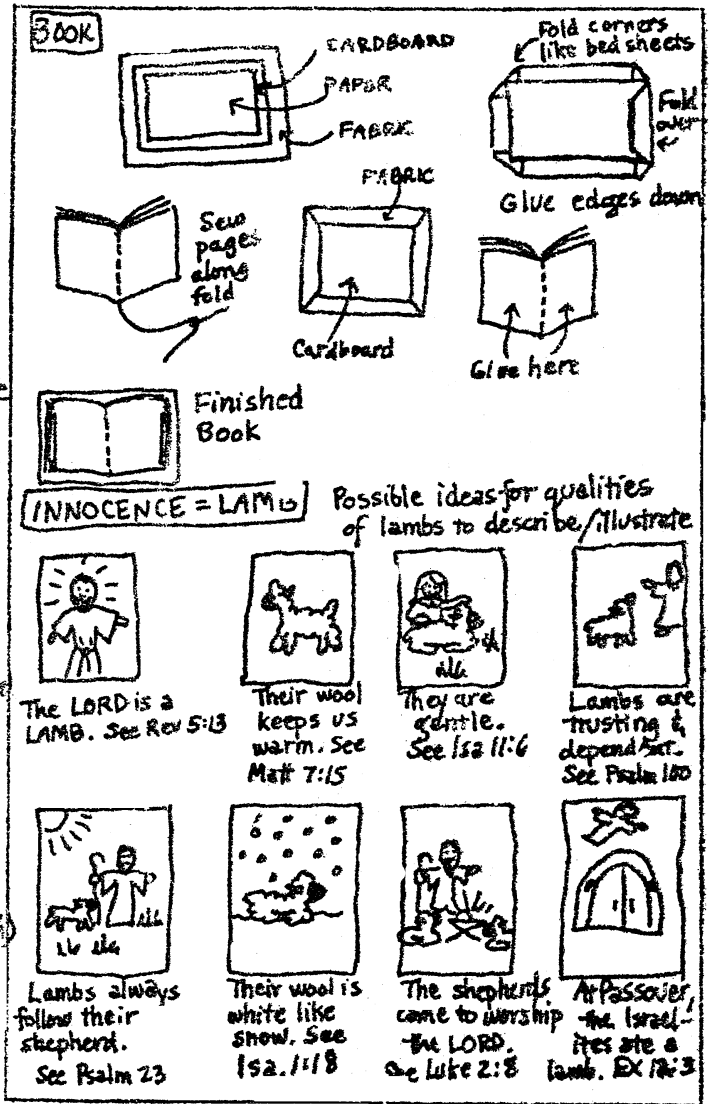 BOOK
CARDBOARD
PAPER
FABRIC
Fold corners
like bed sheets
Fold
over
Glue edges down
Sew
pages
along
fold
FABRIC
Cardboard
Glue here
Finished
Book
INNOCENCE = LAMB
Possible ideas for qualities
of lambs to describe/illustrate
The LORD is a
LAMB. See Rev 5:13
Their wool
keeps us
warm. See
Matt 7:15
They are
gentle.
See Isa 11:6
Lambs are
trusting &
dependent.
See Psalm 100
Lambs always
follow their
shepherd.
See Psalm 23
Their wool is
white like
snow. See
Isa. 1:18
The shepherds
came to worship
the LORD.
See Luke 2:8
At Passover,
the Israel-
ites ate a
lamb. EX 12:3